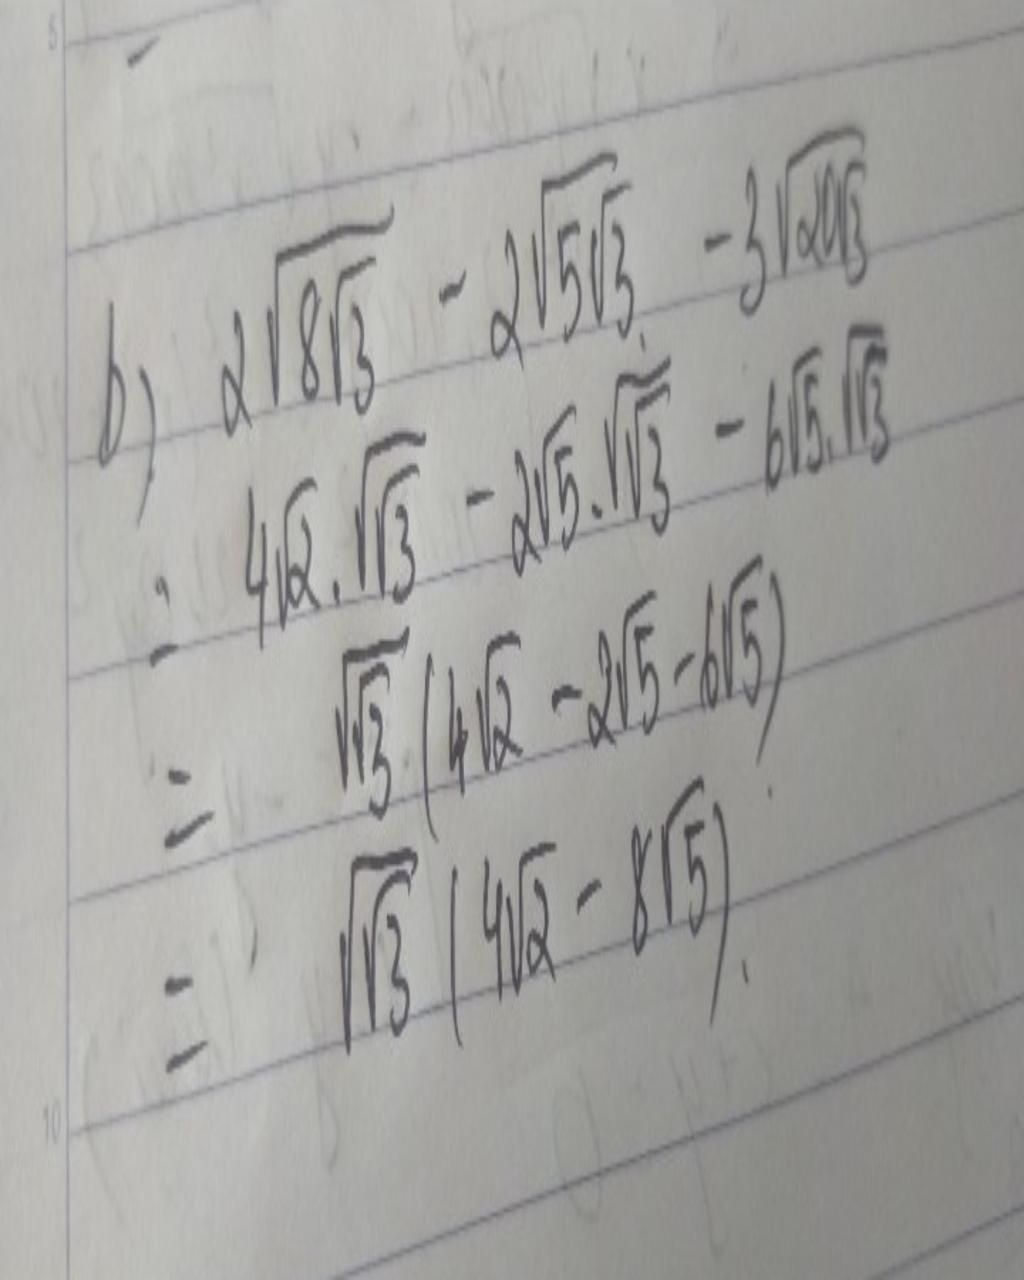 b) 2√(8√3) - 2√(5√3) - 3√(20√3)
= 4√2 . √√3 - 2√5 . √√3 - 6√5 . √√3
= √√3 (4√2 - 2√5 - 6√5)
= √√3 (4√2 - 8√5).